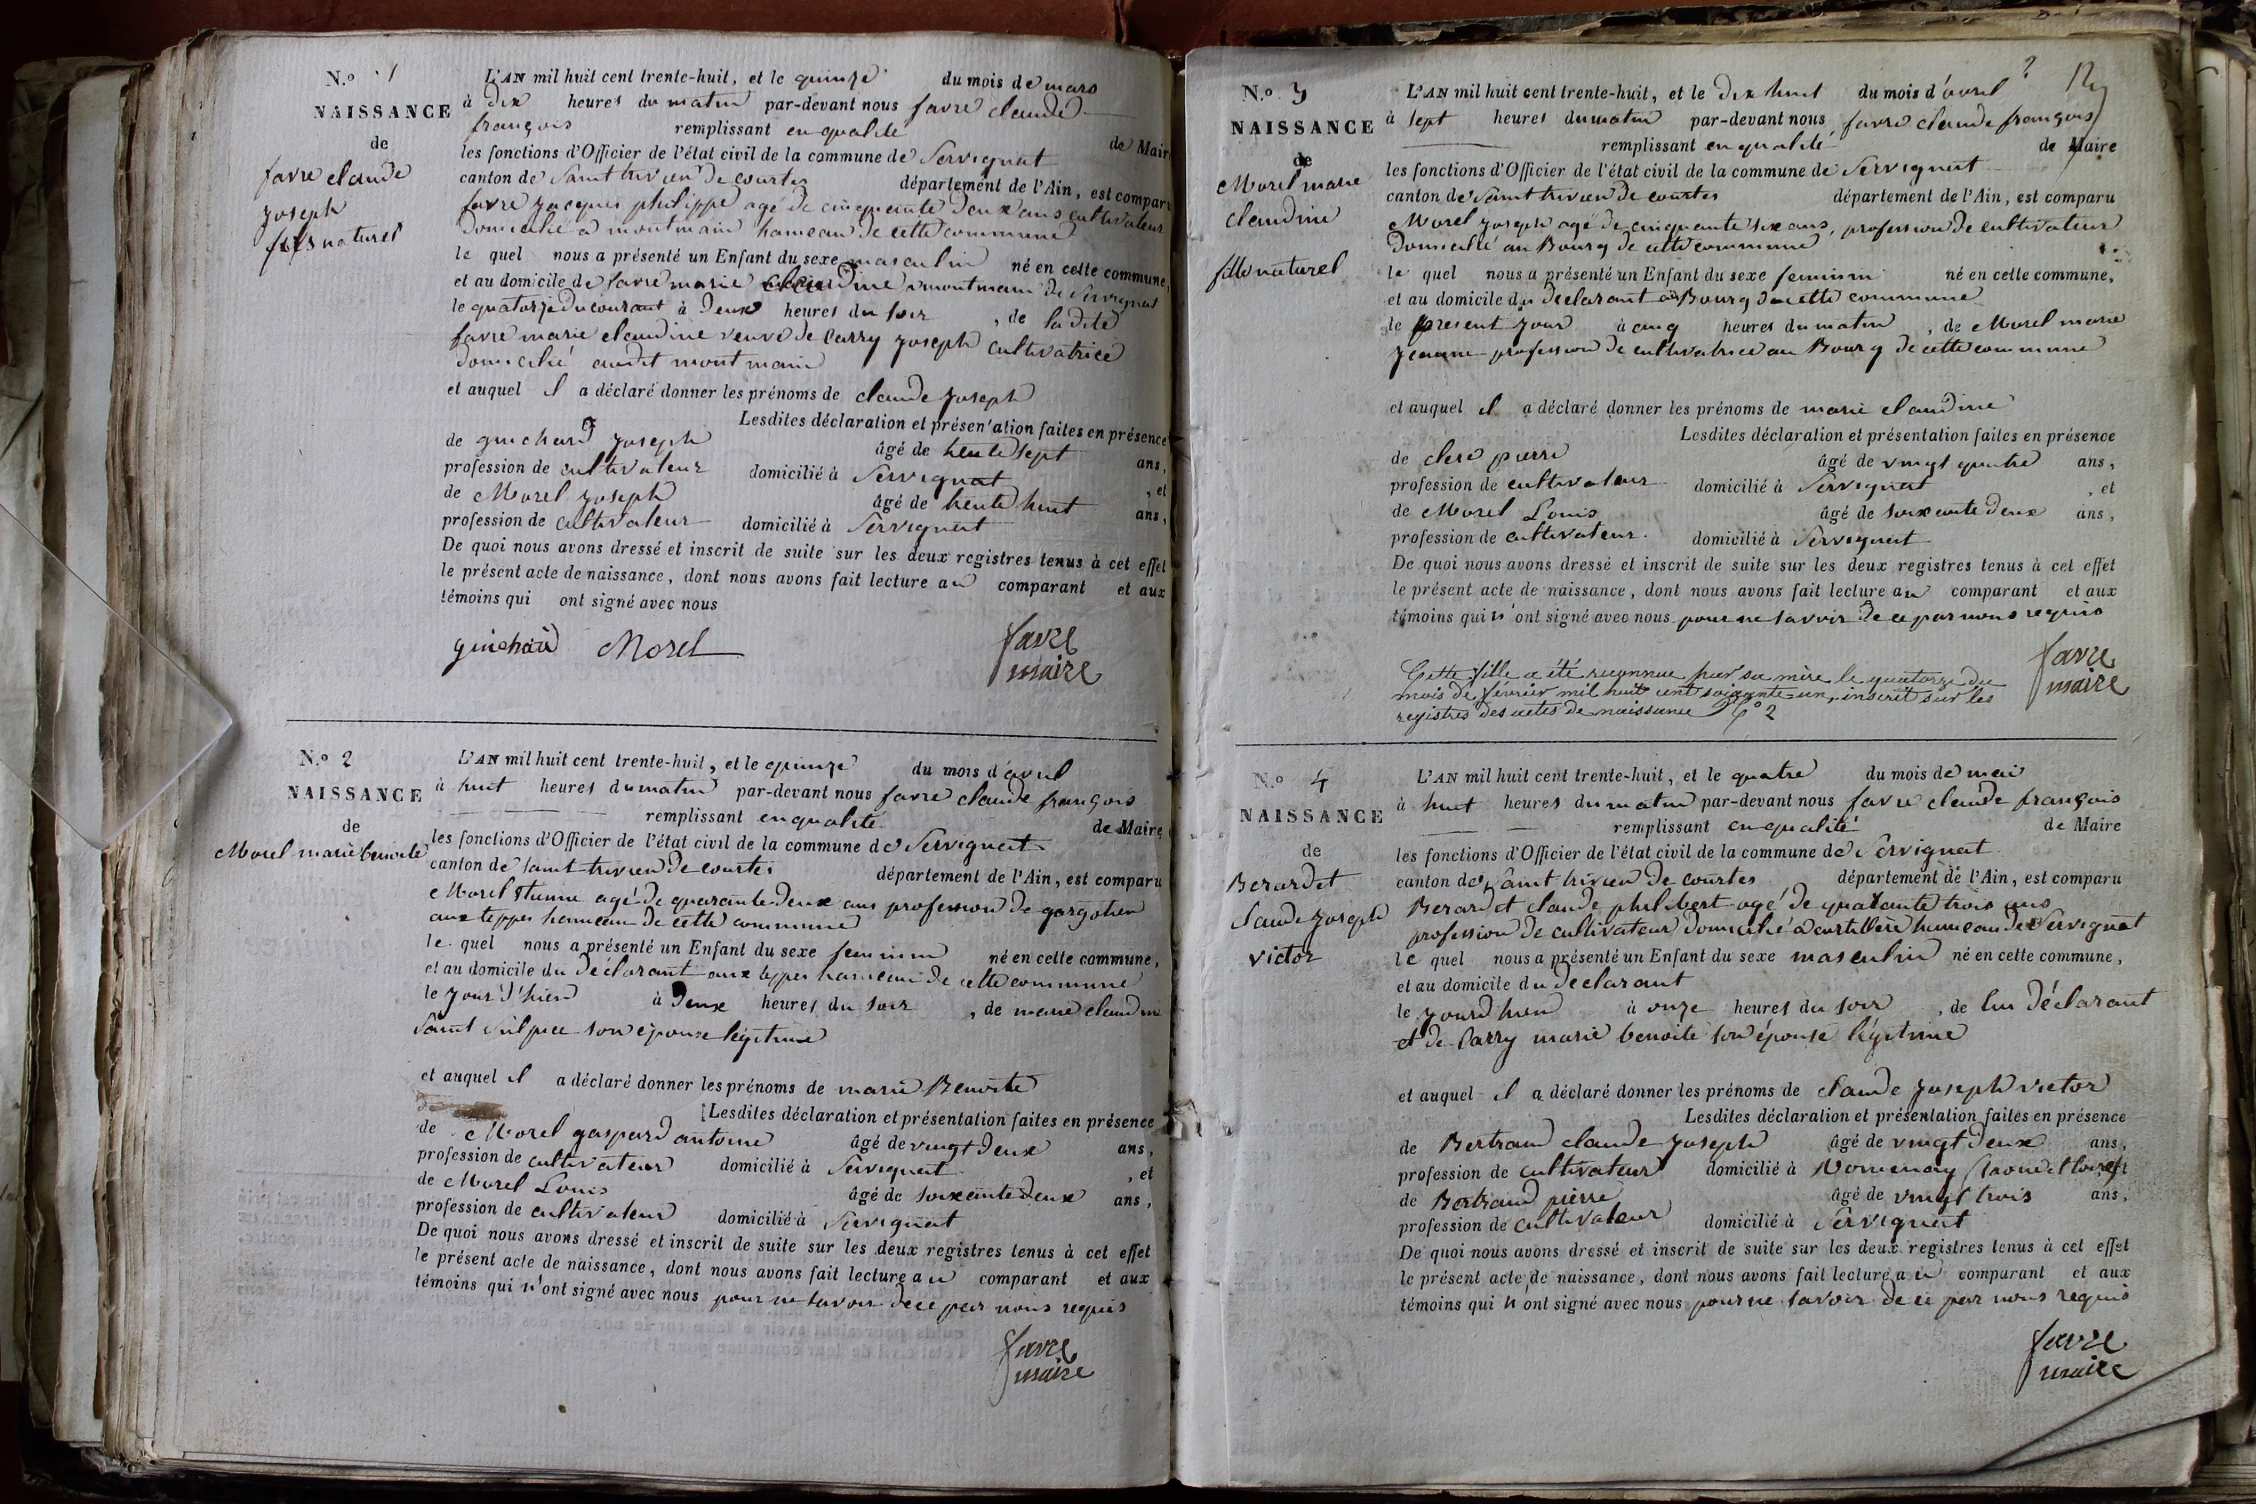 N.o 1
NAISSANCE
de
favre claude
joseph
fils naturel
L'AN mil huit cent trente-huit, et le quinze du mois de mars
à dix heures du matin par-devant nous favre claude
françois remplissant en qualité de Maire
les fonctions d'Officier de l'état civil de la commune de Servignat
canton de Saint trivier de courtes département de l'Ain, est comparu
favre jacques philippe agé de cinquante deux ans cultivateur
domicilié a montmain hameau de cette commune
le quel nous a présenté un Enfant du sexe masculin né en cette commune,
et au domicile de favre marie claudine a montmain de Servignat
le quatorze du courant à deux heures du soir, de la dite
favre marie claudine veuve de Carry joseph cultivatrice
domicilié audit montmain
et auquel il a déclaré donner les prénoms de claude joseph
Lesdites déclaration et présentation faites en présence
de guichard joseph âgé de trente sept ans,
profession de cultivateur domicilié à Servignat, et
de Morel joseph âgé de trente huit ans,
profession de cultivateur domicilié à Servignat
De quoi nous avons dressé et inscrit de suite sur les deux registres tenus à cet effet
le présent acte de naissance, dont nous avons fait lecture au comparant et aux
témoins qui ont signé avec nous
guichard Morel favre
maire
N.o 2
NAISSANCE
de
Morel marie benoite
L'AN mil huit cent trente-huit, et le quinze du mois d'avril
à huit heures du matin par-devant nous favre claude françois
remplissant en qualité de Maire
les fonctions d'Officier de l'état civil de la commune de Servignat
canton de Saint trivier de courtes département de l'Ain, est comparu
Morel Etienne agé de quarante deux ans profession de gargotier
aux teppes hameau de cette commune
le quel nous a présenté un Enfant du sexe feminin né en cette commune,
et au domicile du déclarant aux teppes hameau de cette commune
le jour d'hier à deux heures du soir, de marie claudine
Saint Sulpice son épouse légitime
et auquel il a déclaré donner les prénoms de marie Benoite
Lesdites déclaration et présentation faites en présence
de Morel gaspard antoine âgé de vingt deux ans,
profession de cultivateur domicilié à Servignat, et
de Morel Louis âgé de soixante deux ans,
profession de cultivateur domicilié à Servignat
De quoi nous avons dressé et inscrit de suite sur les deux registres tenus à cet effet
le présent acte de naissance, dont nous avons fait lecture au comparant et aux
témoins qui n'ont signé avec nous pour ne savoir de ce par nous requis
favre
maire
2
N.o 3
NAISSANCE
de
Morel marie
claudine
fille naturel
L'AN mil huit cent trente-huit, et le dix huit du mois d'avril
à sept heures du matin par-devant nous favre claude françois
remplissant en qualité de Maire
les fonctions d'Officier de l'état civil de la commune de Servignat
canton de Saint trivier de courtes département de l'Ain, est comparu
Morel joseph agé de cinquante six ans, profession de cultivateur
domicilié au Bourg de cette commune
le quel nous a présenté un Enfant du sexe feminin né en cette commune,
et au domicile du déclarant au Bourg de cette commune
le present jour à cinq heures du matin, de Morel marie
jeanne profession de cultivatrice au Bourg de cette commune
et auquel il a déclaré donner les prénoms de marie claudine
Lesdites déclaration et présentation faites en présence
de clerc pierre âgé de vingt quatre ans,
profession de cultivateur domicilié à Servignat, et
de Morel Louis âgé de soixante deux ans,
profession de cultivateur. domicilié à Servignat
De quoi nous avons dressé et inscrit de suite sur les deux registres tenus à cet effet
le présent acte de naissance, dont nous avons fait lecture au comparant et aux
témoins qui n'ont signé avec nous pour ne savoir de ce par nous requis
favre
maire
Cette fille a été reconnue par sa mère le quatorze du
mois de février mil huit cent soixante-un, inscrit sur les
registres des actes de naissance N° 2
N.o 4
NAISSANCE
de
Berardet
Claude joseph
victor
L'AN mil huit cent trente-huit, et le quatre du mois de mai
à huit heures du matin par-devant nous favre claude françois
remplissant en qualité de Maire
les fonctions d'Officier de l'état civil de la commune de Servignat
canton de Saint trivier de courtes département de l'Ain, est comparu
Berardet claude philibert agé de quarante trois ans
profession de cultivateur domicilié a curtillere hameau de Servignat
le quel nous a présenté un Enfant du sexe masculin né en cette commune,
et au domicile du déclarant
le jour d'hier à onze heures du soir, de lui déclarant
et de Carry marie benoite son épouse légitime
et auquel il a déclaré donner les prénoms de claude joseph victor
Lesdites déclaration et présentation faites en présence
de Bertrand claude joseph âgé de vingt deux ans,
profession de cultivateur domicilié à Romenay Saone et Loire, et
de Bertrand pierre âgé de vingt trois ans,
profession de cultivateur domicilié à Servignat
De quoi nous avons dressé et inscrit de suite sur les deux registres tenus à cet effet
le présent acte de naissance, dont nous avons fait lecture au comparant et aux
témoins qui n'ont signé avec nous pour ne savoir de ce par nous requis
favre
maire